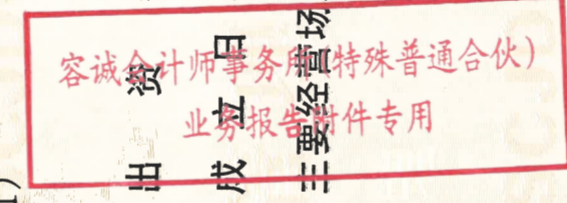 容诚会计师事务所(特殊普通合伙)
业务报告附件专用
出 资
成 立 日
主要经营场